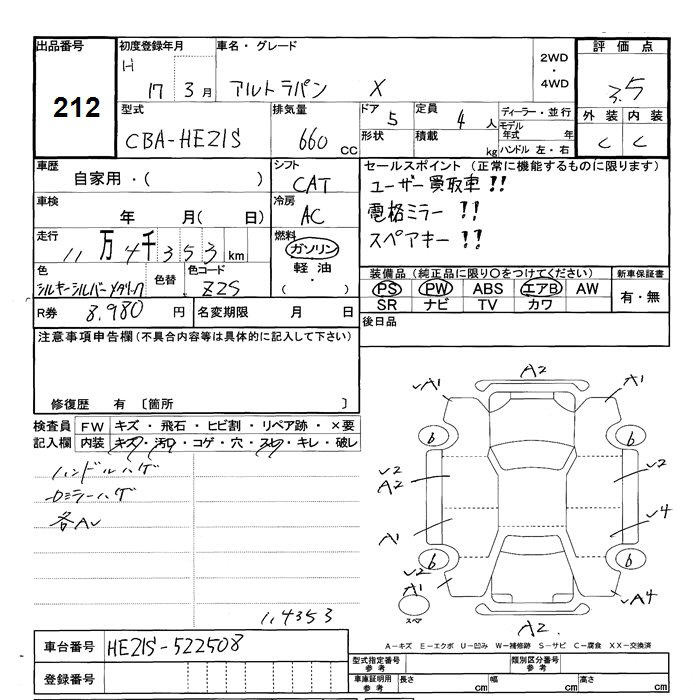 出品番号 初度登録年月 車名・グレード 2WD・4WD 評価点
212 H 17 3月 アルトラパン X 3.5
型式 排気量 ドア 5 定員 4人 ディーラー・並行 外装 内装
CBA-HE21S 660 CC 形状 積載 kg モデル年式 年 C C
ハンドル 左・右
車歴 シフト セールスポイント (正常に機能するものに限ります)
自家用・( ) CAT ユーザー買取車!!
車検 冷房 電格ミラー !!
年 月(日) AC スペアキー !!
走行 燃料
11万4千353km ガソリン
軽油・
色 色替 色コード 装備品 (純正品に限り○をつけてください) 新車保証書
シルキーシルバーメタリック Z2S PS PW ABS エアB AW 有・無
SR ナビ TV カワ
R券 8,980 円 名変期限 月 日 後日品
注意事項申告欄 (不具合内容等は具体的に記入して下さい)
修復歴 有 〔箇所 〕
検査員 FW キズ・飛石・ヒビ割・リペア跡・×要
記入欄 内装 キズ・汚れ・コゲ・穴・スレ・キレ・破レ
ハンドルハゲ
各AU
1,4353
A2
A1 A1
b b
U2 U2
A2
A1 U4
b b
U2
A1 A4
スペア
A2
A-キズ E-エクボ U-凹み W-補修跡 S-サビ C-腐食 XX-交換済
車台番号 HE21S-522508
登録番号
型式指定番号 参考 類別区分番号 参考
車庫証明用 参考 長さ cm 幅 cm 高さ cm